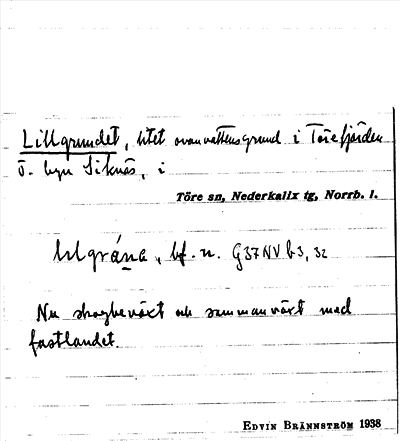 Lillgrundet, litet ovanvattensgrund i Törefjärden
ö. byn Siknäs, i
Töre sn, Nederkalix tg, Norrb. l.
lılgråna, bf. n. G37NV b3, 32
Nu skogbeväxt och sammanväxt med
fastlandet.
EDVIN BRÄNNSTRÖM 1938